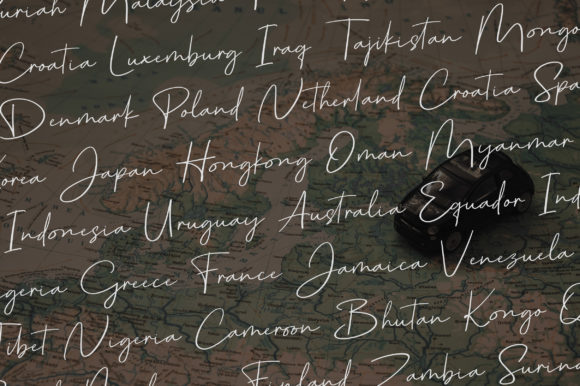 Malaysia
Croatia Luxemburg Iraq Tajikistan Mongo
Denmark Poland Netherland Croatia Spa
orea Japan Hongkong Oman Myanmar
Indonesia Uruguay Australia Equador Ind
geria Greece France Jamaica Venezuela
Tibet Nigeria Cameroon Bhutan Kongo
Finland Zambia Surin